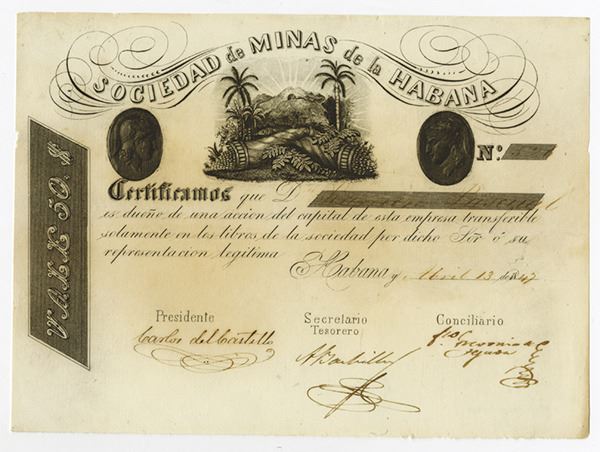 SOCIEDAD de MINAS de la HABANA
VALE 50. $
Nº.
Certificamos que D.
es dueño de una accion del capital de esta empresa transferible
solamente en los libros de la sociedad por dicho Sōr ó su
representacion legítima
Habana y Abril 13 de 1847
Presidente
Secretario
Tesorero
Conciliario
Carlos del Castillo